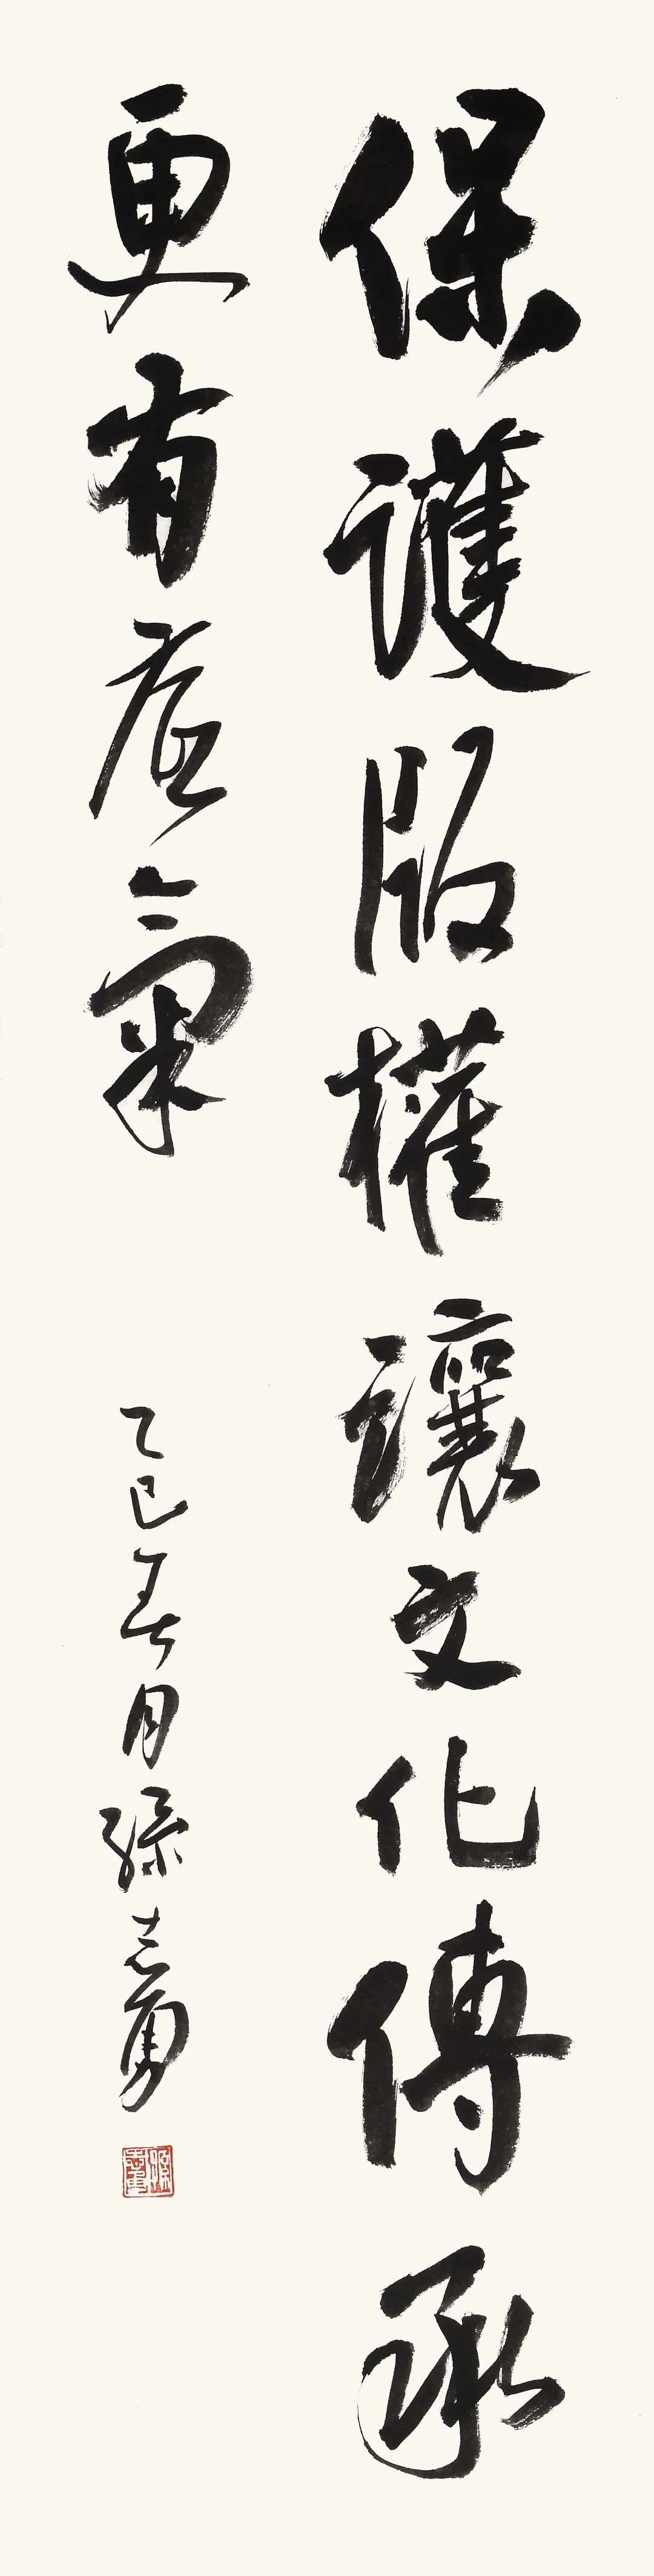 保護版權讓文化傳承
更有底氣
乙巳春月孫志勇